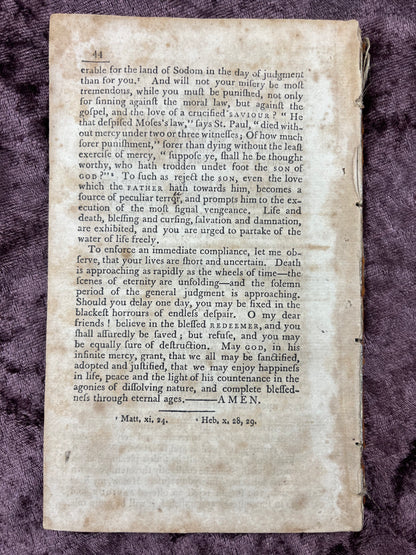 44
erable for the land of Sodom in the day of judgment
than for you.¹ And will not your miſery be moſt
tremendous, while you muſt be puniſhed, not only
for ſinning againſt the moral law, but againſt the
goſpel, and the love of a crucified SAVIOUR? “ He
that deſpiſed Moſes's law,” ſays St. Paul, “ died with-
out mercy under two or three witneſſes; Of how much
ſorer puniſhment,” ſorer than dying without the leaſt
exerciſe of mercy, “ ſuppoſe ye, ſhall he be thought
worthy, who hath trodden under foot the SON of
GOD?”² To ſuch as reject the SON, even the love
which the FATHER hath towards him, becomes a
ſource of peculiar terror, and prompts him to the ex-
ecution of the moſt ſignal vengeance. Life and
death, bleſſing and curſing, ſalvation and damnation,
are exhibited, and you are urged to partake of the
water of life freely.
To enforce an immediate compliance, let me ob-
ſerve, that your lives are ſhort and uncertain. Death
is approaching as rapidly as the wheels of time—the
ſcenes of eternity are unfolding—and the ſolemn
period of the general judgment is approaching.
Should you delay one day, you may be fixed in the
blackeſt horrours of endleſs deſpair. O my dear
friends! believe in the bleſſed REDEEMER, and you
ſhall aſſuredly be ſaved; but refuſe, and you may
be equally ſure of deſtruction. May GOD, in his
infinite mercy, grant, that we all may be ſanctified,
adopted and juſtified, that we may enjoy happineſs
in life, peace and the light of his countenance in the
agonies of diſſolving nature, and complete bleſſed-
neſs through eternal ages.———AMEN.
¹ Matt, xi, 24. ² Heb, x, 28, 29.